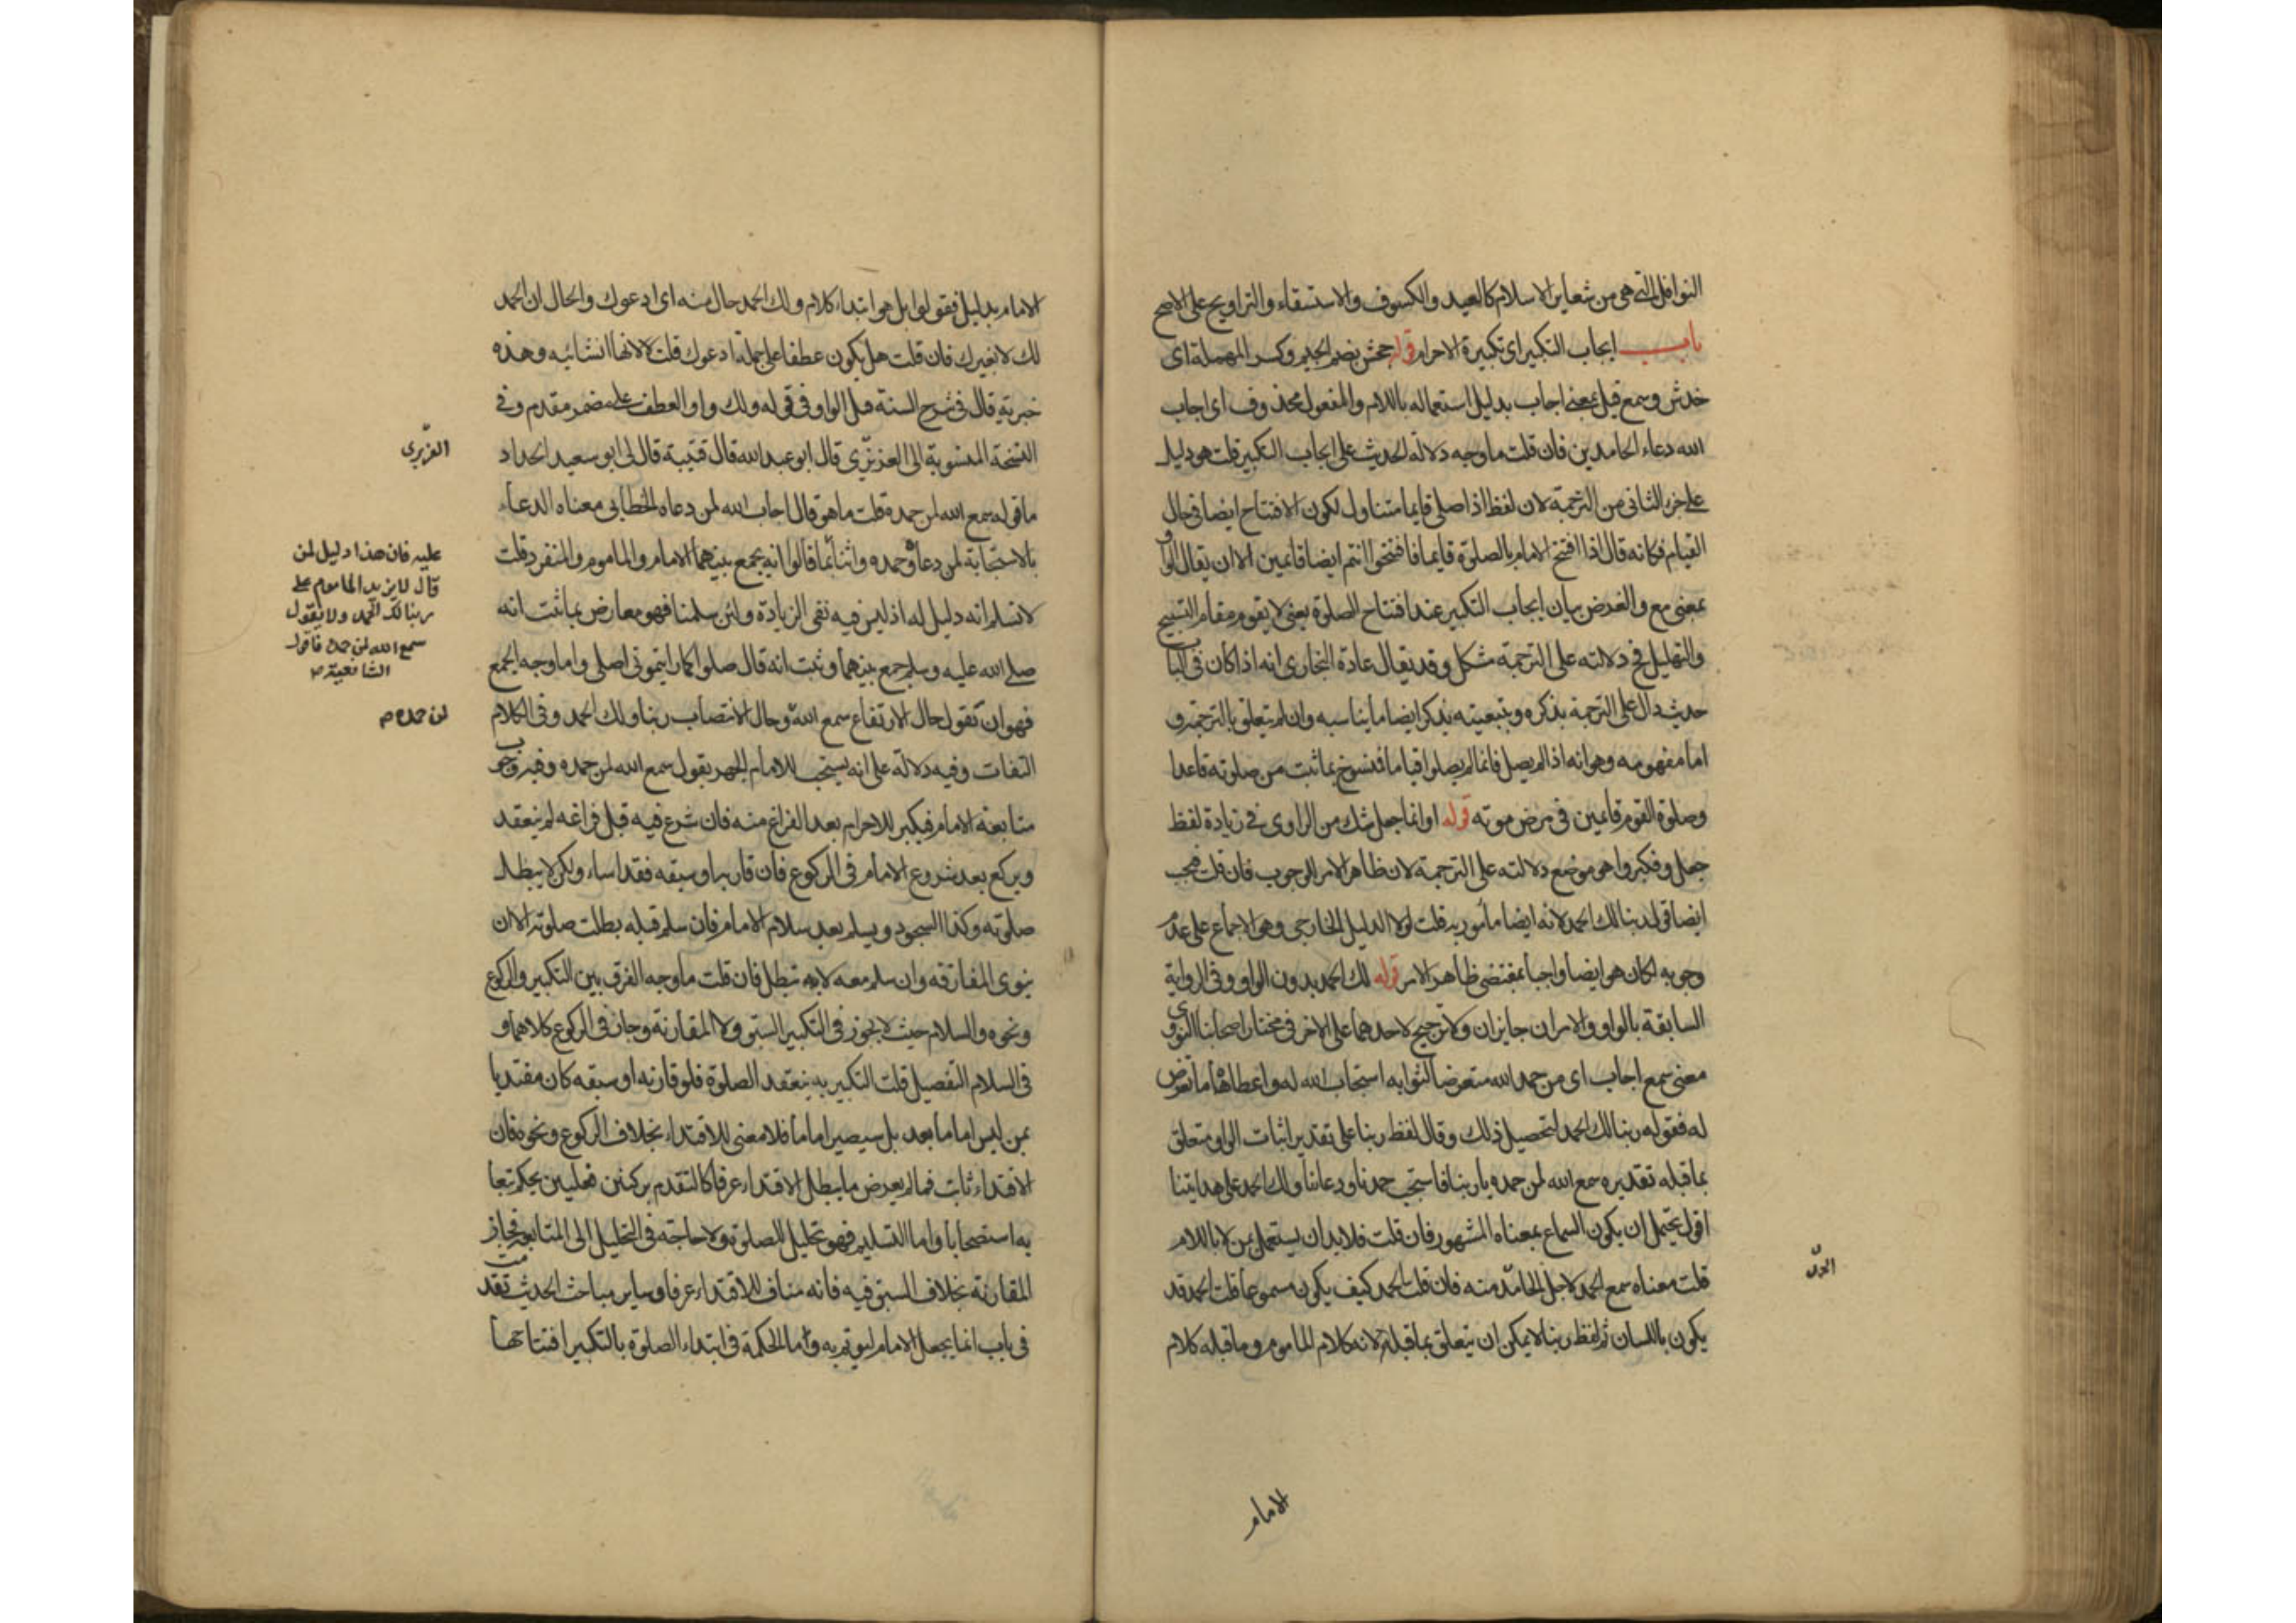 النوافل التى هى من شعاير الاسلام كالعيد والكسوف والاستسقاء والتراويح على الاصح
باب ايجاب التكبير اى تكبيرة الاحرام قوله جحش بضم الجيم وكسر المهملة اى
خدش وسمع قيل بمعنى اجاب بدليل استعماله باللام والمفعول محذوف اى اجاب
الله دعاء الحامدين فان قلت ما وجه دلالة الحديث على ايجاب التكبير قلت هو دليل
على جزء الثانى من الترجمة لان لفظ اذا صلى قايما متناول لكون الافتتاح ايضا فى حال
القيام فكانه قال اذا افتتح الامام بالصلوة قايما فافتتحوا انتم ايضا قائمين الا ان يقال الواو
بمعنى مع والغرض بيان ايجاب التكبير عند افتتاح الصلوة يعنى لا يقوم مقام التسبيح
والتهليل فح دلالته على الترجمة مشكل وقد يقال عادة البخارى انه اذا كان فى الباب
حديث دال على الترجمة يذكره وبتبعيته يذكر ايضا ما يناسبه وان لم يتعلق بالترجمة و
اما مفهومه وهو انه اذا لم يصل قائما لم يصلوا قياما فمنسوخ بما ثبت من صلوته قاعدا
وصلوة القوم قائمين فى مرض موته قوله او انما جعل شك من الراوى فى زيادة لفظ
جعل وفكبروا هو موضع دلالته على الترجمة لان ظاهر الامر للوجوب فان قلت فيجب
ايضا قول ربنا لك الحمد لانه ايضا مأمور به قلت لولا الدليل الخارجى وهو الاجماع على عدم
وجوبه لكان هو ايضا واجبا بمقتضى ظاهر الامر قوله لك الحمد بدون الواو وفى الرواية
السابقة بالواو والامران جايزان ولا ترجيح لاحدهما على الاخر فى مختار اصحابنا النووى
معنى سمع اجاب اى من حمد الله متعرضا لثوابه استجاب الله له واعطاه ما تعرض
له فقوله ربنا لك الحمد لتحصيل ذلك وقال لفظ ربنا على تقدير اثبات الواو متعلق
بما قبله تقديره سمع الله لمن حمده يا ربنا فاستجب حمدنا ودعانا ولك الحمد على هدايتنا
اقول يحتمل ان يكون السماع بمعناه المشهور فان قلت فلا بد ان يستعمل بمن لا باللام
قلت معناه سمع الحمد لاجل الحامد منه فان قلت الحمد كيف يكون مسموعا قلت الحمد قد
يكون باللسان ثم لفظ ربنا لا يمكن ان يتعلق بما قبله لانه كلام الماموم وما قبله كلام
الامام
الامام بدليل فقولوا بل هو ابتداء كلام ولك الحمد حال منه اى ادعوك والحال ان الحمد
لك لا لغيرك فان قلت هل يكون عطفا على جملة ادعوك قلت لا لانها انشائيه وهذه
خبرية قال فى شرح السنة قيل الواو فى قوله ولك واو العطف على مضمر مقدم وفى
النسخة المنسوبة الى العزيزى قال ابو عبد الله قال قتيبة قال لى ابو سعيد الحداد
ما قوله سمع الله لمن حمده قلت ما هو قال اجاب الله لمن دعاه الخطابى معناه الدعاء
بالاستجابة لمن دعاه وحمده واثنا ائمتنا قالوا انه يجمع بينهما الامام والماموم والمنفرد قلت
لا نسلم انه دليل له اذ ليس فيه نفى الزيادة ولئن سلمنا فهو معارض بما ثبت انه
صلى الله عليه وسلم جمع بينهما وثبت انه قال صلوا كما رايتمونى اصلى واما وجه الجمع
فهو ان تقول حال الارتفاع سمع الله وحال الانتصاب ربنا ولك الحمد وفى الكلام
التفات وفيه دلالة على انه يستحب للامام الجهر بقول سمع الله لمن حمده وفيه وجوب
متابعة الامام فيكبر للاحرام بعد الفراغ منه فان شرع فيه قبل فراغه لم ينعقد
ويركع بعد شروع الامام فى الركوع فان قارنه او سبقه فقد اساء ولكن لا يبطل
صلوته وكذا السجود ويسلم بعد سلام الامام فان سلم قبله بطلت صلوته الا ان
ينوى المفارقة وان سلم معه لا تبطل فان قلت ما وجه الفرق بين التكبير والركوع
ونحوه والسلام حيث لا يجوز فى التكبير السبق ولا المقارنة وجاز فى الركوع كلاهما و
فى السلام التفصيل قلت التكبير به ينعقد الصلوة فلو قارنه او سبقه كان مقتديا
بمن ليس اماما بعد بل سيصير اماما فلا معنى للاقتداء بخلاف الركوع ونحوه فان
الاقتداء ثابت فما لم يعرض ما يبطل الاقتداء عرفا كالتقدم بركنين فعليين يحكم ببقا
به استصحابا واما التسليم فهو تحليل للصلوة ولا حاجة فى التحليل الى المتابعة فجاز
المقارنة بخلاف السبق فيه فانه مناف للاقتداء عرفا وساير مباحث الحديث تقدمت
فى باب انما يجعل الامام ليوتم به واما الحكمة فى ابتداء الصلوة بالتكبير افتتاحها
عليه فان هذا دليل لمن
قال لا يزيد الماموم على
ربنا لك الحمد ولا يقول
سمع الله لمن حمده فاقول
الشافعية ص
لمن حمده م